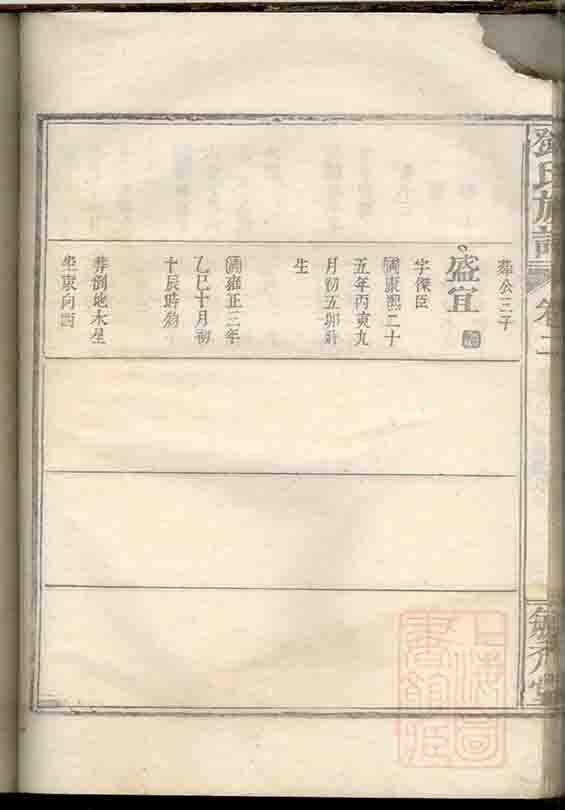 鄧氏族譜
卷二
公三子
盛宜
字傑臣
清康熙二十
五年丙寅九
月初五卯時
生
清雍正三年
乙巳十月初
十辰時歿
葬倒地木星
坐東向西
上海圖
書館藏